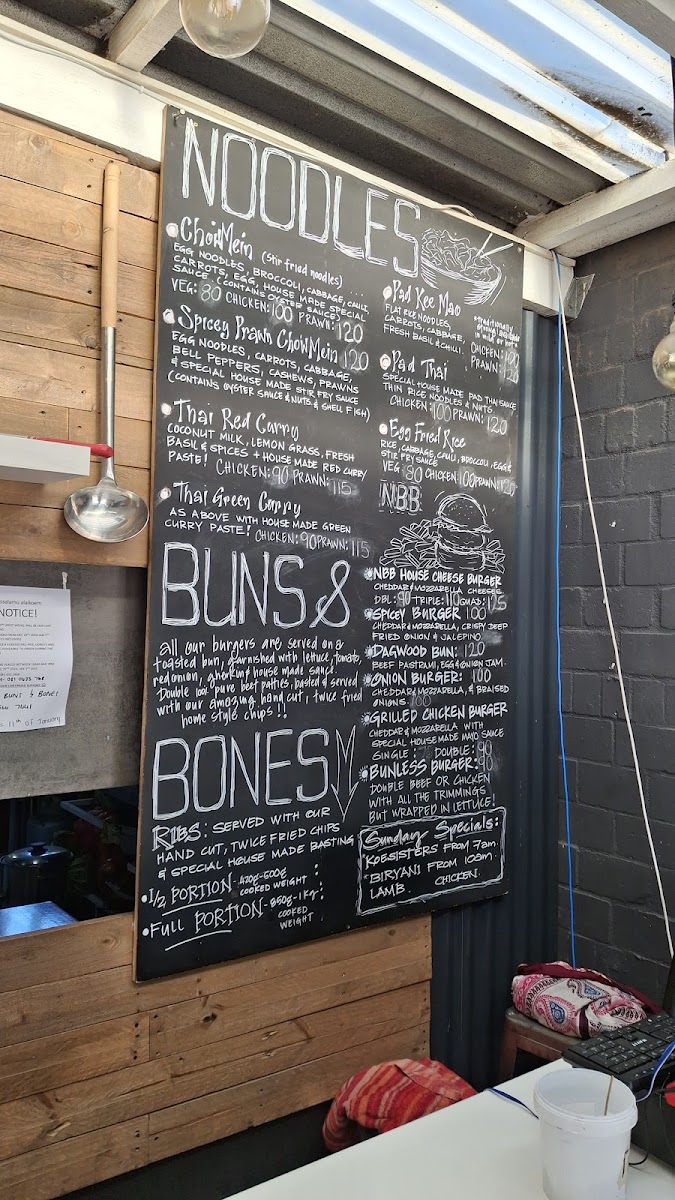 NOODLES
ChowMein (Stir fried noodles) ....
EGG NOODLES, BROCCOLI, CABBAGE, CAULI,
CARROTS, EGG, HOUSE MADE SPECIAL
SAUCE (CONTAINS OYSTER SAUCE)
VEG: 80 CHICKEN: 100 PRAWN: 120
Spicey Prawn ChowMein 120
EGG NOODLES, CARROTS, CABBAGE,
BELL PEPPERS, CASHEWS, PRAWNS
& SPECIAL HOUSE MADE STIR FRY SAUCE
(CONTAINS OYSTER SAUCE & NUTS & SHELL FISH)
Thai Red Curry
COCONUT MILK, LEMON GRASS, FRESH
BASIL & SPICES + HOUSE MADE RED CURRY
PASTE! CHICKEN: 90 PRAWN: 115
Thai Green Curry
AS ABOVE WITH HOUSE MADE GREEN
CURRY PASTE! CHICKEN: 90 PRAWN: 115
Pad Kee Mao
FLAT RICE NOODLES,
CARROTS, CABBAGE,
FRESH BASIL & CHILLI
*traditionally
in mild or hot*
CHICKEN:
PRAWN:
Pad Thai
SPECIAL HOUSE MADE PAD THAI SAUCE
THIN RICE NOODLES & NUTS
CHICKEN: 100 PRAWN: 120
Egg Fried Rice
RICE, CABBAGE, CAULI, BROCCOLI, EGG &
STIR FRY SAUCE
VEG: 80 CHICKEN 100 PRAWN: 120
NBB
BUNS &
all our burgers are served on a
toasted bun, garnished with lettuce, tomato,
red onion, gherkin & house made sauce.
Double 100% pure beef patties, basted & served
with our amazing hand cut, twice fried
home style chips!!
BONES
RIBS: SERVED WITH OUR
HAND CUT, TWICE FRIED CHIPS
& SPECIAL HOUSE MADE BASTING
• 1/2 PORTION - 420g-500g :
COOKED WEIGHT
• FULL PORTION - 850g-1kg:
COOKED
WEIGHT
NBB HOUSE CHEESE BURGER
CHEDDAR & MOZZARELLA CHEESES
DBL: 90 TRIPLE: 110 QUAD: 125
SPICEY BURGER 100
CHEDDAR & MOZZARELLA, CRISPY DEEP
FRIED ONION & JALEPINO
DAGWOOD BUN: 120
BEEF PASTRAMI, EGG & ONION JAM
ONION BURGER: 100
CHEDDAR & MOZZARELLA, & BRAISED
ONIONS 100
GRILLED CHICKEN BURGER
CHEDDAR & MOZZARELLA WITH
SPECIAL HOUSE MADE MAYO SAUCE
SINGLE: DOUBLE: 90
BUNLESS BURGER: 90
DOUBLE BEEF OR CHICKEN
WITH ALL THE TRIMMINGS
BUT WRAPPED IN LETTUCE!
Sunday Specials:
KOESISTERS FROM 7am.
BIRYANI FROM 10am.
LAMB. CHICKEN.
NOTICE!
BUNS & BONES
11th of January